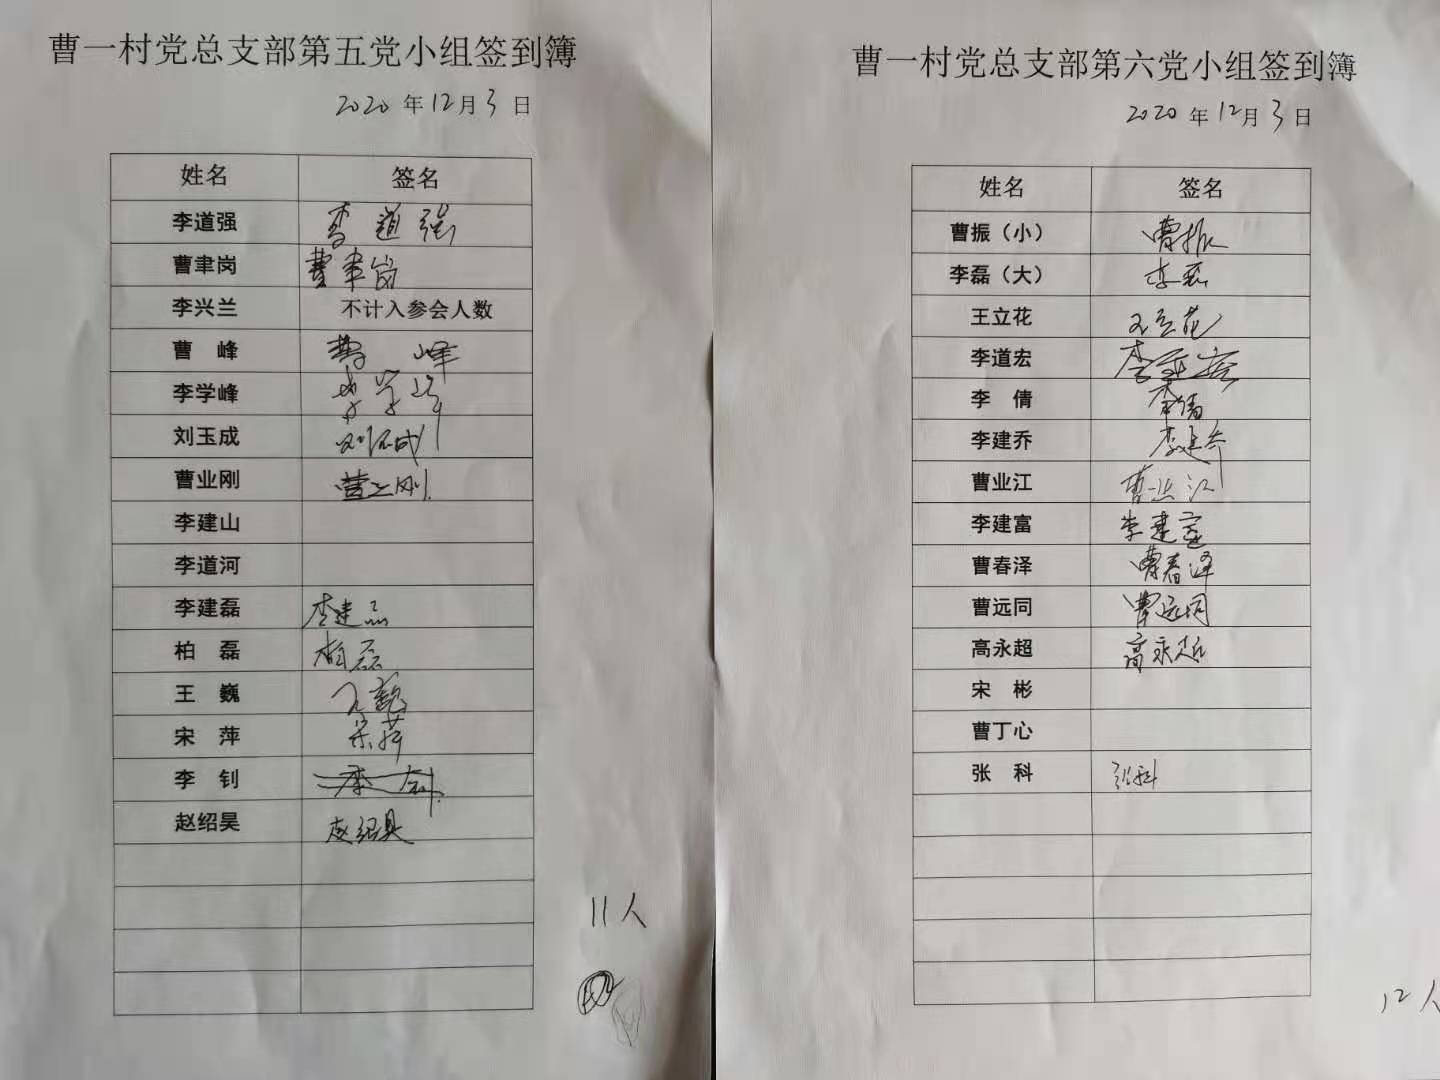 曹一村党总支部第五党小组签到簿
2020年12月3日
姓名 签名
李道强 李道强
曹聿岗 曹聿岗
李兴兰 不计入参会人数
曹 峰 曹峰
李学峰 李学峰
刘玉成 刘玉成
曹业刚 曹业刚
李建山
李道河
李建磊 李建磊
柏 磊 柏磊
王 巍 王巍
宋 萍 宋萍
李 钊 李钊
赵绍昊 赵绍昊
11人
曹一村党总支部第六党小组签到簿
2020年12月3日
姓名 签名
曹振（小） 曹振
李磊（大） 李磊
王立花 王立花
李道宏 李道宏
李 倩 李倩
李建乔 李建乔
曹业江 曹业江
李建富 李建富
曹春泽 曹春泽
曹远同 曹远同
高永超 高永超
宋 彬
曹丁心
张 科 张科
12人